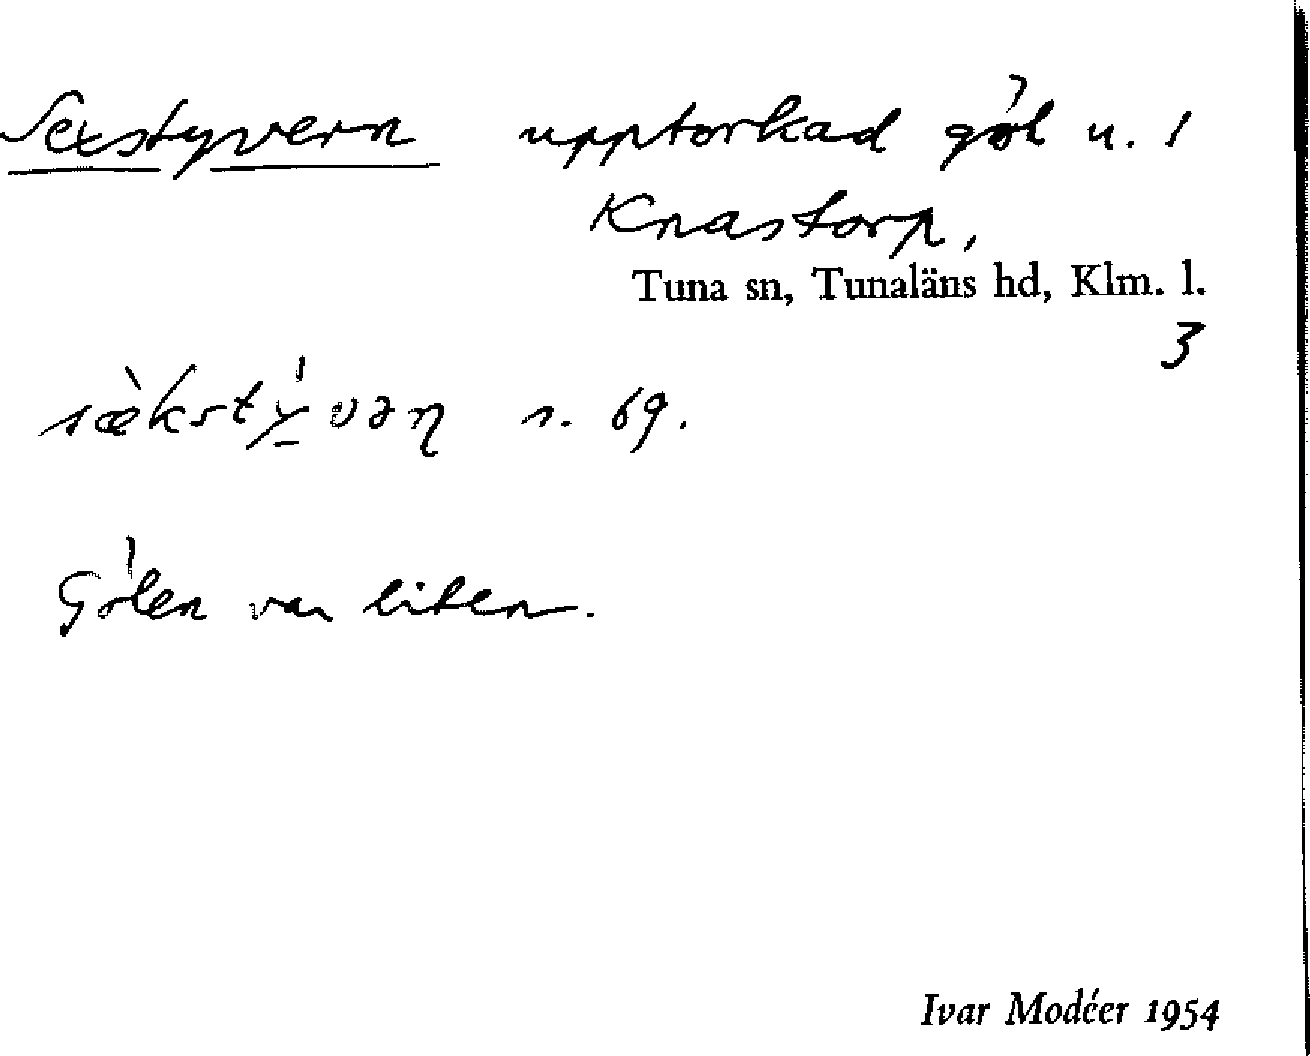 Sexstyvern upptorkad göl u. 1
Knastorp,
Tuna sn, Tunaläns hd, Klm. l.
3
sæ̀kstý̱vəɳ s. 69.
Gölen var liten.
Ivar Modéer 1954